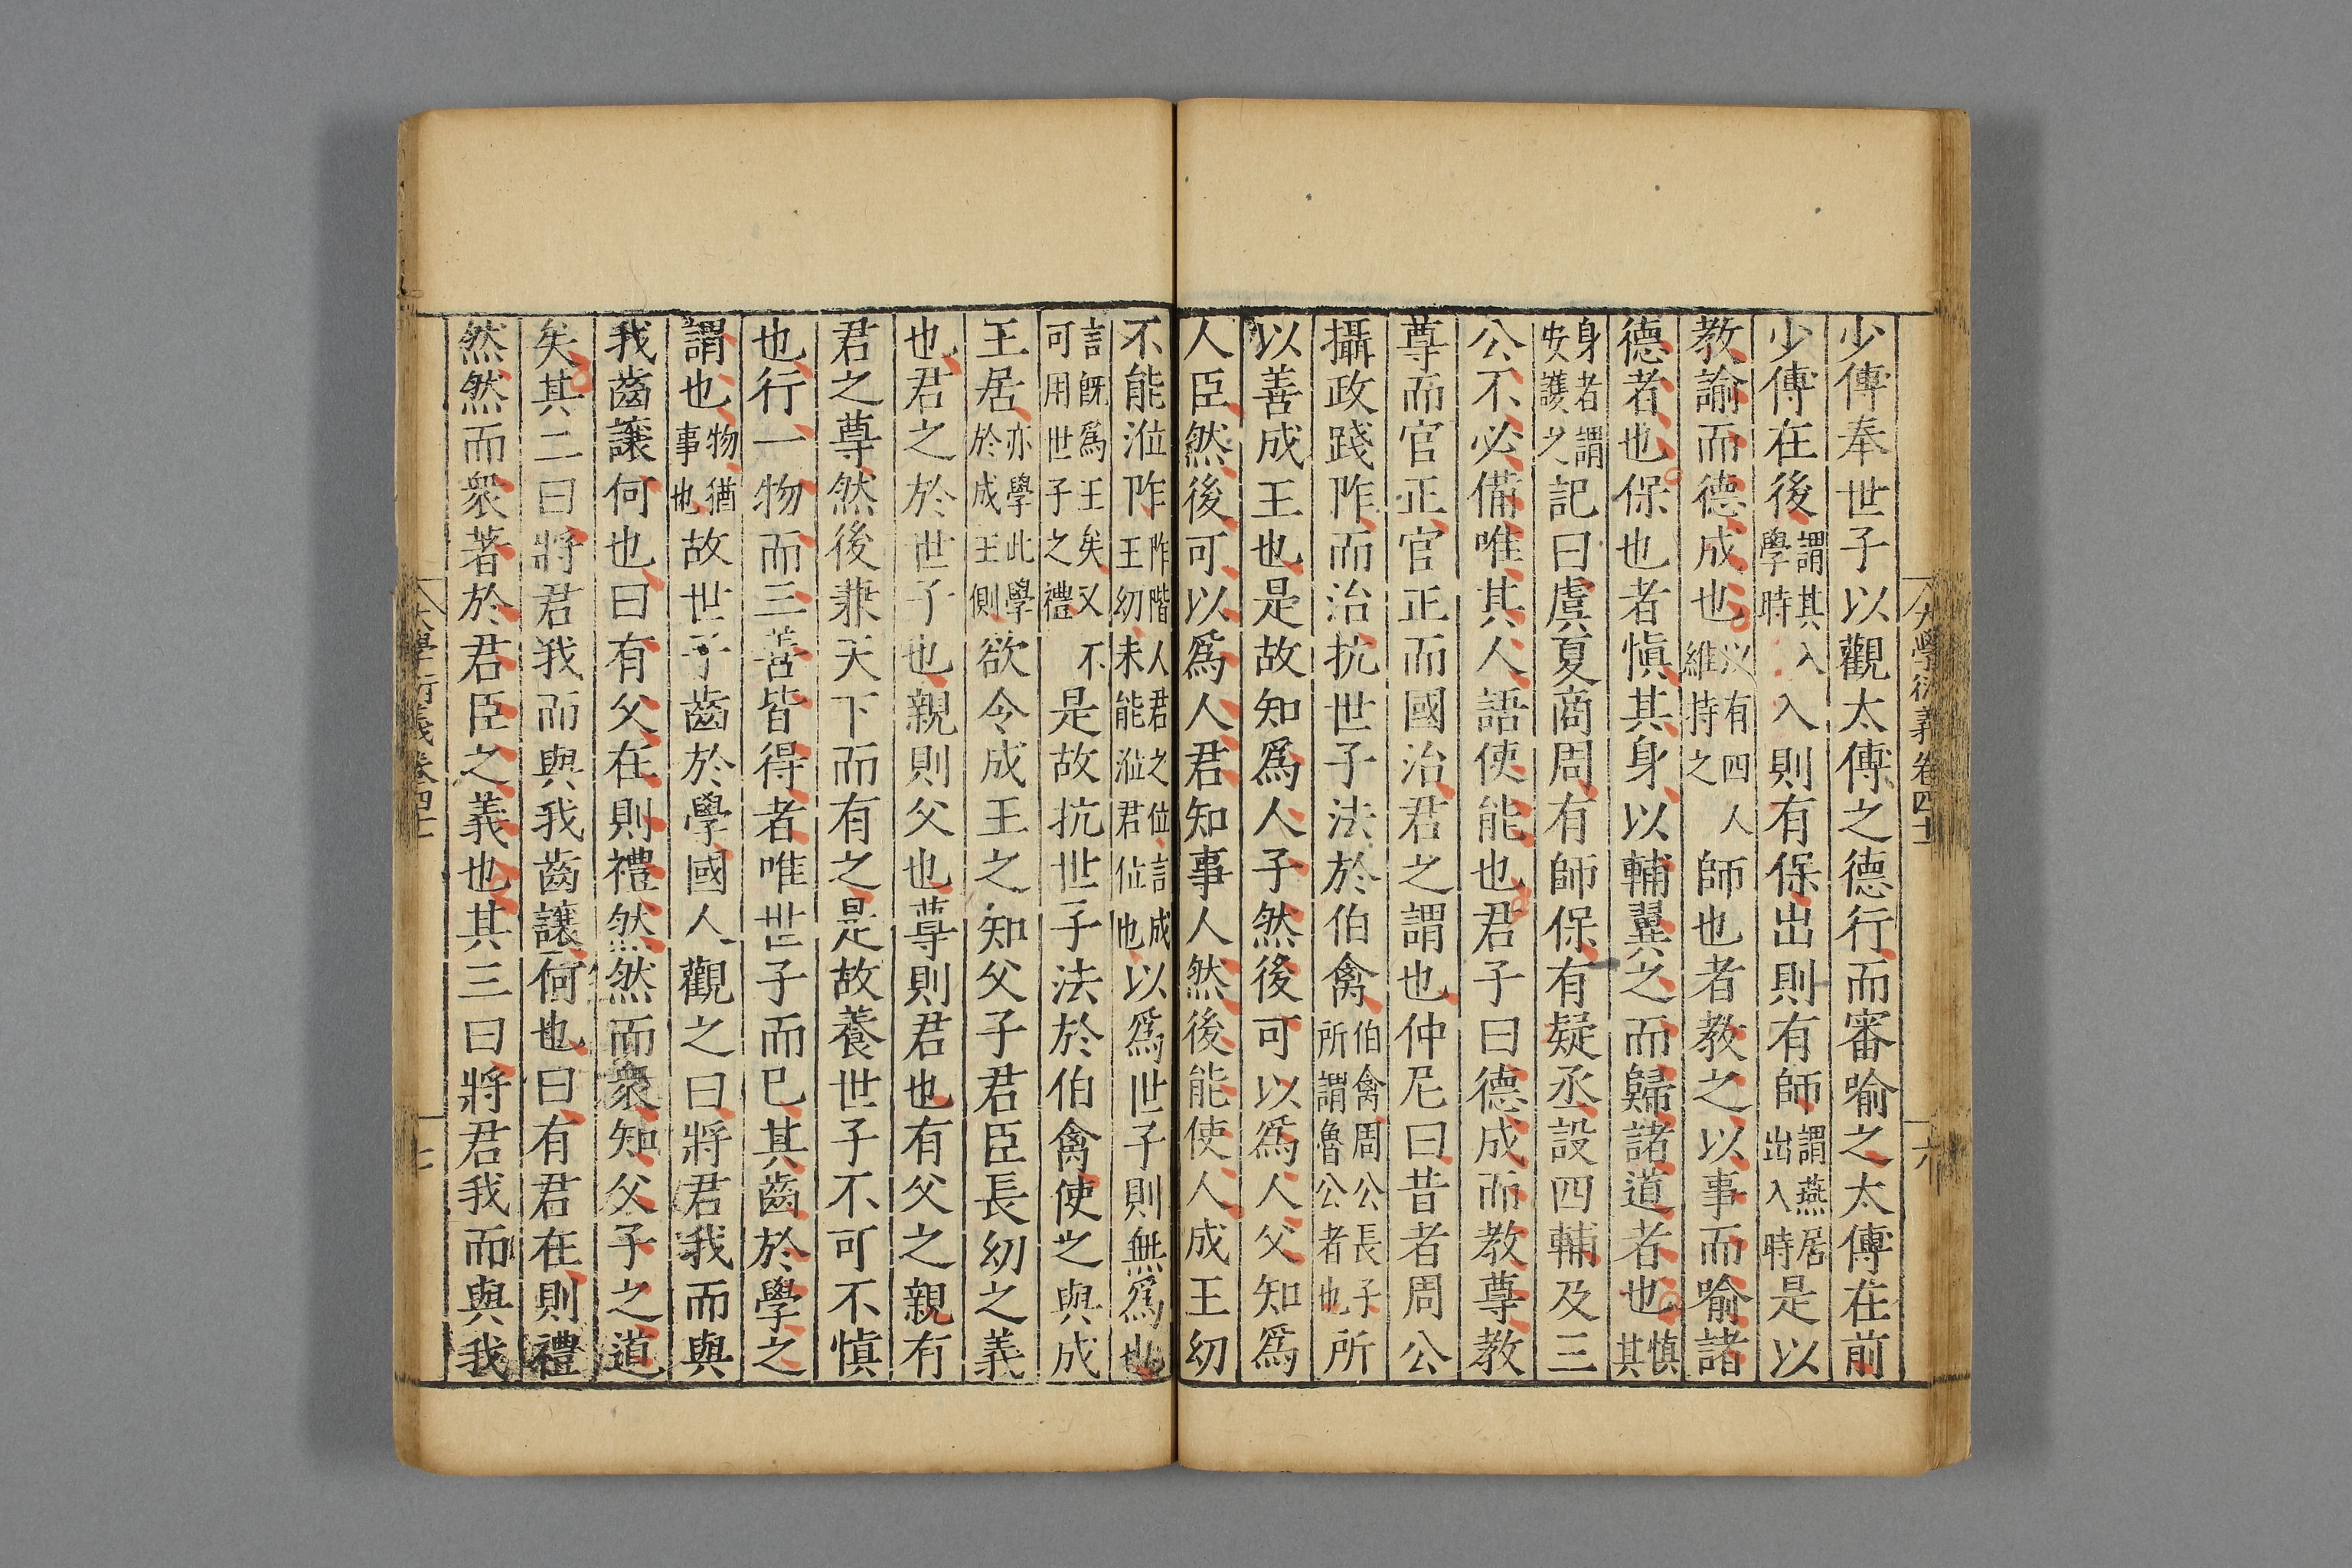 少傅奉世子以觀太傅之德行而審喻之太傅在前
少傅在後謂其入學時入則有保出則有師謂燕居出入時是以
教諭而德成也以有四人維持之師也者教之以事而喻諸
德者也保也者慎其身以輔翼之而歸諸道者也慎其
身者謂安護之記曰虞夏商周有師保有疑丞設四輔及三
公不必備唯其人語使能也君子曰德成而教尊教
尊而官正官正而國治君之謂也仲尼曰昔者周公
攝政踐阼而治抗世子法於伯禽伯禽周公長子所謂魯公者也所
以善成王也是故知爲人子然後可以爲人父知爲
人臣然後可以爲人君知事人然後能使人成王幼
不能涖阼阼階人君之位言成王幼未能涖君位也以爲世子則無爲也
言既爲王矣又不可用世子之禮是故抗世子法於伯禽使之與成
王居亦學此學於成王側欲令成王之知父子君臣長幼之義
也君之於世子也親則父也尊則君也有父之親有
君之尊然後兼天下而有之是故養世子不可不慎
也行一物而三善皆得者唯世子而已其齒於學之
謂也物猶事也故世子齒於學國人觀之曰將君我而與
我齒讓何也曰有父在則禮然然而衆知父子之道
矣其二曰將君我而與我齒讓何也曰有君在則禮
然然而衆著於君臣之義也其三曰將君我而與我
大學衍義卷四十
六
大學衍義卷四十
七